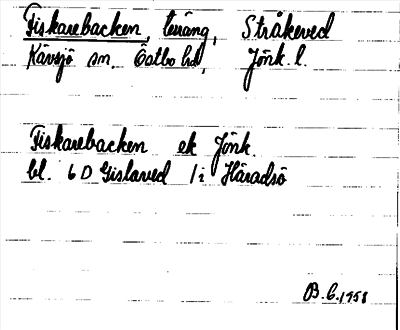 Fiskarebacken, teräng, Stråkeved
Kävsjö sn. Östbo hd, Jönk. l.
Fiskarebacken ek Jönk.
bl. 6 D Gislaved 1: Häradsö
B. C. 1958